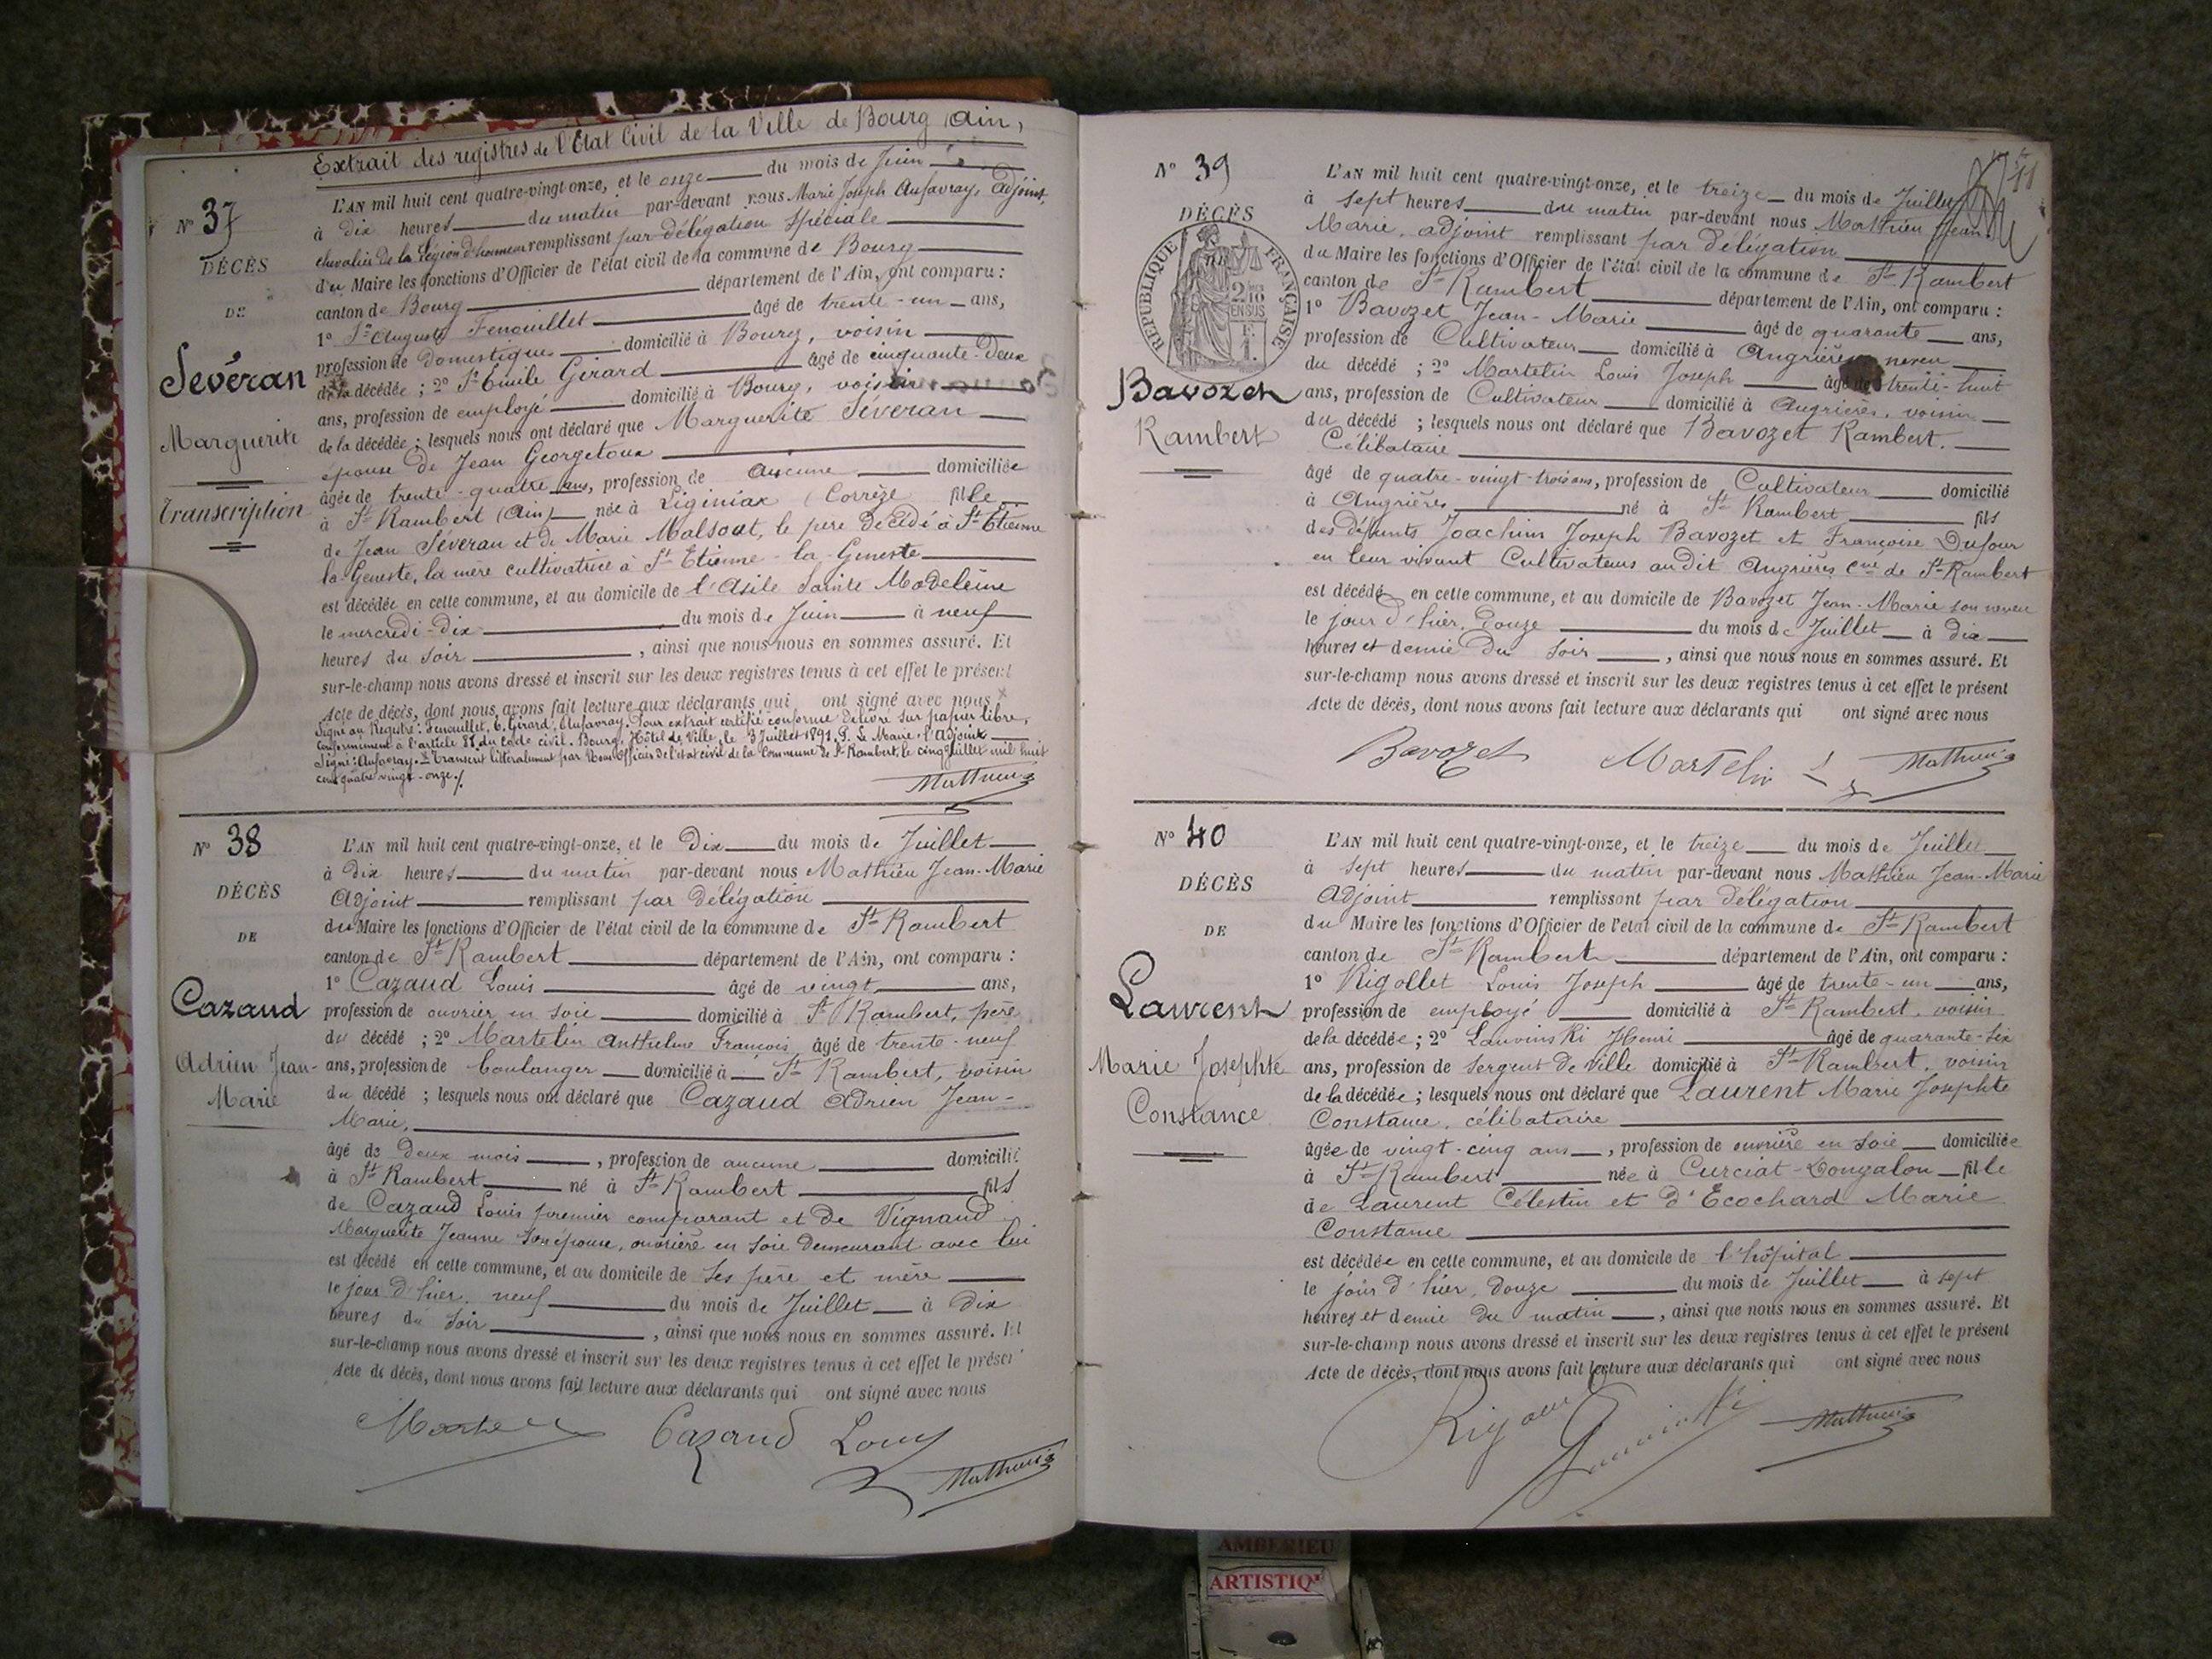 Extrait des registres de l'Etat Civil de la Ville de Bourg (Ain)
N° 37
DÉCÈS
DE
Séveran
Marguerite
Transcription
L'AN mil huit cent quatre-vingt-onze, et le onze du mois de Juin
à dix heures du matin par-devant nous Marie Joseph Aufavray, Adjoint
chevalier de la Légion d'honneur remplissant par délégation spéciale
du Maire les fonctions d'Officier de l'état civil de la commune de Bourg
canton de Bourg département de l'Ain, ont comparu :
1° Sr Auguste Fenouillet âgé de trente-un ans,
profession de domestique domicilié à Bourg, voisin
de la décédée ; 2° Sr Emile Girard âgé de cinquante-deux
ans, profession de employé domicilié à Bourg, voisin
de la décédée ; lesquels nous ont déclaré que Marguerite Séveran
épouse de Jean Georgetoux
âgée de trente-quatre ans, profession de aucune domiciliée
à St Rambert (Ain) née à Liginiac (Corrèze fille
de Jean Séveran et de Marie Malsout, le père décédé à St Etienne
la-Geneste, la mère cultivatrice à St Etienne-la-Geneste
est décédée en cette commune, et au domicile de l'Asile Sainte Madeleine
le mercredi-dix du mois de Juin à neuf
heures du soir, ainsi que nous nous en sommes assuré. Et
sur-le-champ nous avons dressé et inscrit sur les deux registres tenus à cet effet le présent
Acte de décès, dont nous avons fait lecture aux déclarants qui ont signé avec nous
Signé au Registre : Fenouillet, E. Girard, Aufavray. Pour extrait certifié conforme délivré sur papier libre,
conformément à l'article 81 du code civil. Bourg, Hôtel de Ville, le 3 Juillet 1891. P. Le Maire, l'Adjoint
Signé : Aufavray. Transcrit littéralement par Nous Officier de l'état civil de la Commune de St Rambert, le cinq Juillet mil huit
cent quatre vingt-onze./.
Mathieu
N° 38
DÉCÈS
DE
Cazaud
Adrien Jean-
Marie
L'AN mil huit cent quatre-vingt-onze, et le Dix du mois de Juillet
à Dix heures du matin par-devant nous Mathieu Jean-Marie
Adjoint remplissant par délégation
du Maire les fonctions d'Officier de l'état civil de la commune de St Rambert
canton de St Rambert département de l'Ain, ont comparu :
1° Cazaud Louis âgé de vingt ans,
profession de ouvrier en soie domicilié à St Rambert, père
du décédé ; 2° Martelin Anthelme François âgé de trente-neuf
ans, profession de boulanger domicilié à St Rambert, voisin
du décédé ; lesquels nous ont déclaré que Cazaud Adrien Jean-
Marie,
âgé de deux mois, profession de aucune domicilié
à St Rambert né à St Rambert fils
de Cazaud Louis premier comparant et de Vignaud
Marguerite Jeanne son épouse, ouvrière en soie demeurant avec lui
est décédé en cette commune, et au domicile de ses père et mère
le jour d'hier, neuf du mois de Juillet à dix
heures du soir, ainsi que nous nous en sommes assuré. Et
sur-le-champ nous avons dressé et inscrit sur les deux registres tenus à cet effet le présent
Acte de décès, dont nous avons fait lecture aux déclarants qui ont signé avec nous
Cazaud Louis
Mathieu
N° 39
DÉCÈS
RÉPUBLIQUE FRANÇAISE
2/10 EN SUS
Bavozet
Rambert
L'AN mil huit cent quatre-vingt-onze, et le treize du mois de Juillet
à sept heures du matin par-devant nous Mathieu Jean-
Marie, adjoint remplissant par délégation
du Maire les fonctions d'Officier de l'état civil de la commune de St Rambert
canton de St Rambert département de l'Ain, ont comparu :
1° Bavozet Jean-Marie âgé de quarante ans,
profession de Cultivateur domicilié à Angrières neveu
du décédé ; 2° Martelin Louis Joseph âgé de trente-huit
ans, profession de Cultivateur domicilié à Angrières, voisin
du décédé ; lesquels nous ont déclaré que Bavozet Rambert.
Célibataire
âgé de quatre-vingt-trois ans, profession de Cultivateur domicilié
à Angrières né à St Rambert fils
des défunts Joachim Joseph Bavozet et Françoise Dufour
en leur vivant Cultivateurs au dit Angrières Cne de St Rambert
est décédé en cette commune, et au domicile de Bavozet Jean-Marie son neveu
le jour d'hier, douze du mois de Juillet à dix
heures et demie du soir, ainsi que nous nous en sommes assuré. Et
sur-le-champ nous avons dressé et inscrit sur les deux registres tenus à cet effet le présent
Acte de décès, dont nous avons fait lecture aux déclarants qui ont signé avec nous
Bavozet Martelin Mathieu
N° 40
DÉCÈS
DE
Laurent
Marie Josephte
Constance
L'AN mil huit cent quatre-vingt-onze, et le treize du mois de Juillet
à sept heures du matin par-devant nous Mathieu Jean-Marie
Adjoint remplissant par délégation
du Maire les fonctions d'Officier de l'état civil de la commune de St Rambert
canton de St Rambert département de l'Ain, ont comparu :
1° Rigollet Louis Joseph âgé de trente-un ans,
profession de employé domicilié à St Rambert, voisin
de la décédée ; 2° Lauvinski Henri âgé de quarante-six
ans, profession de Sergent de Ville domicilié à St Rambert, voisin
de la décédée ; lesquels nous ont déclaré que Laurent Marie Josephte
Constance, célibataire
âgée de vingt-cinq ans, profession de ouvrière en soie domiciliée
à St Rambert née à Curciat-Dongalon fille
de Laurent Célestin et d'Ecochard Marie
Constance
est décédée en cette commune, et au domicile de l'hôpital
le jour d'hier, douze du mois de Juillet à sept
heures et demie du matin, ainsi que nous nous en sommes assuré. Et
sur-le-champ nous avons dressé et inscrit sur les deux registres tenus à cet effet le présent
Acte de décès, dont nous avons fait lecture aux déclarants qui ont signé avec nous
Mathieu
AMBERIEU
ARTISTIQ